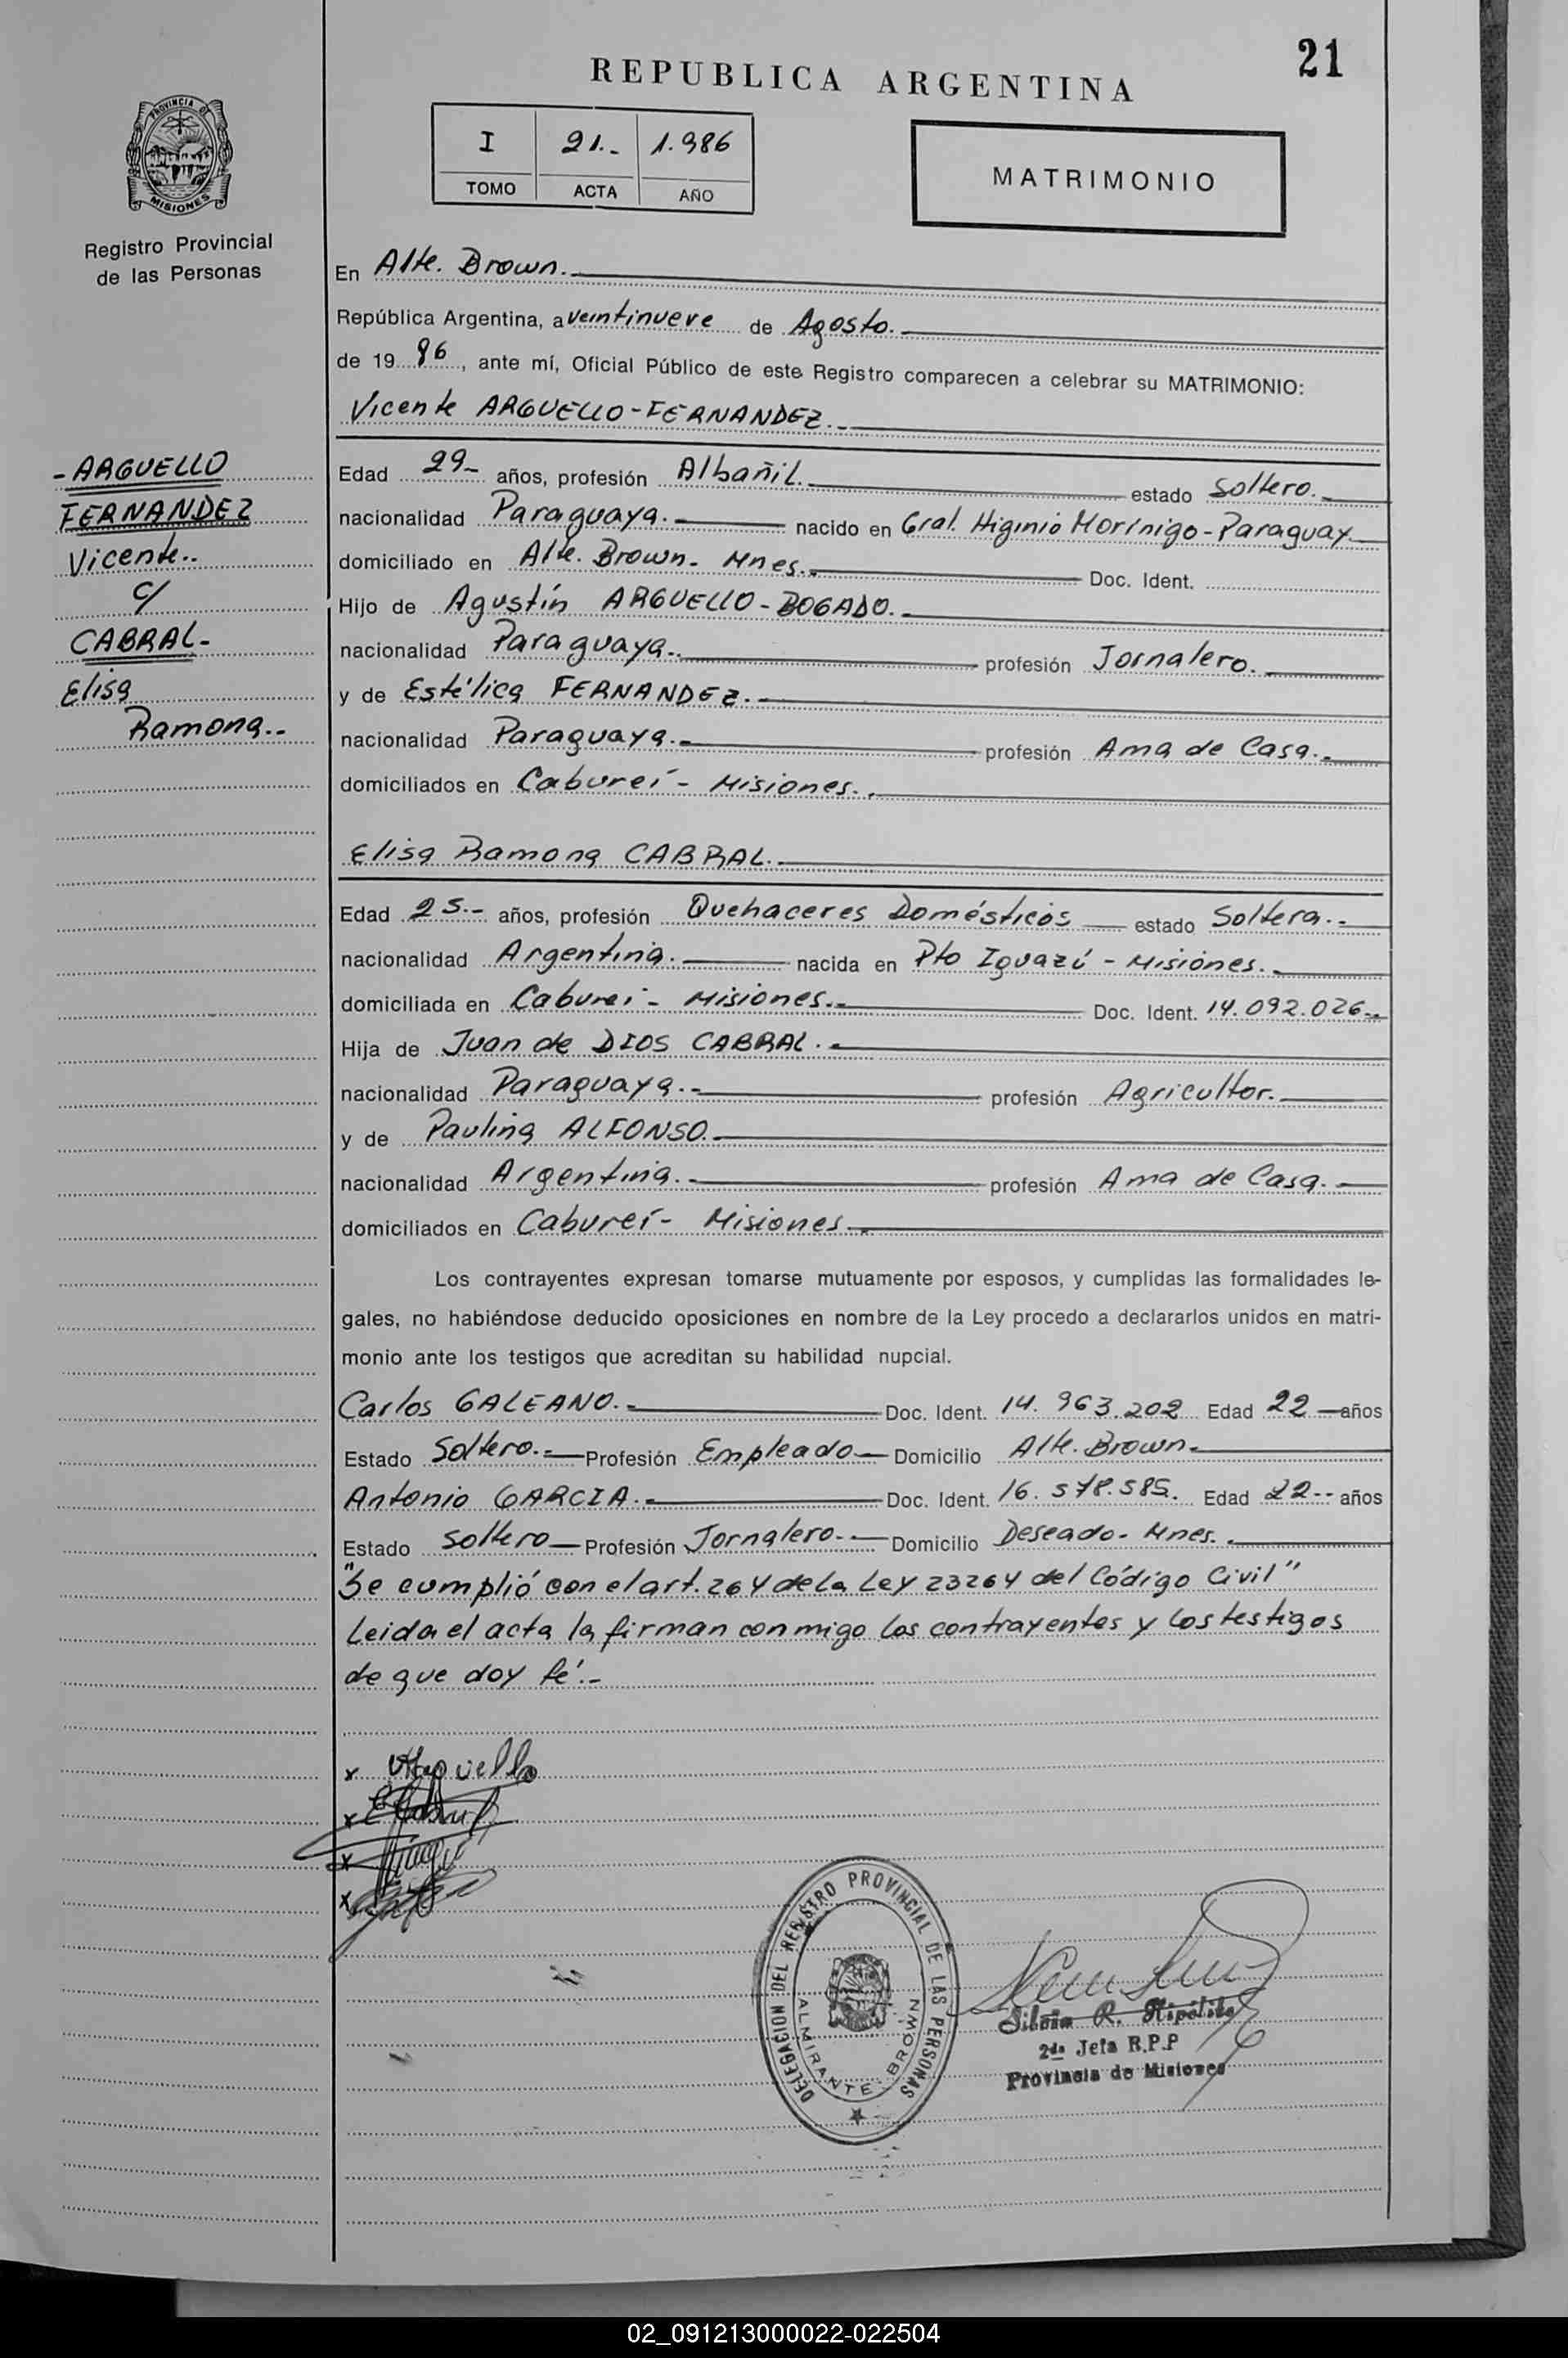 21
REPUBLICA ARGENTINA
I 21.- 1.986
TOMO ACTA AÑO
MATRIMONIO
PROVINCIA D
MISIONES
Registro Provincial
de las Personas
En Alte. Brown.
República Argentina, a veintinueve de Agosto.
de 19 86, ante mí, Oficial Público de este Registro comparecen a celebrar su MATRIMONIO:
Vicente ARGUELLO-FERNANDEZ.-
-ARGUELLO
FERNANDEZ
Vicente..
c/
CABRAL-
Elisa
Ramona..
Edad 29- años, profesión Albañil. estado Soltero.-
nacionalidad Paraguaya.- nacido en Gral. Higinio Morínigo-Paraguay
domiciliado en Alte. Brown- Mnes.- Doc. Ident.
Hijo de Agustín ARGUELLO-BOGADO.-
nacionalidad Paraguaya.- profesión Jornalero.-
y de Estélica FERNANDEZ.-
nacionalidad Paraguaya.- profesión Ama de Casa.-
domiciliados en Cabureí- Misiones.-
Elisa Ramona CABRAL.
Edad 25.- años, profesión Quehaceres Domésticos estado Soltera.-
nacionalidad Argentina. nacida en Pto Iguazú - Misiones.
domiciliada en Cabureí- Misiones.- Doc. Ident. 14.092.026.-
Hija de Juan de DIOS CABRAL.-
nacionalidad Paraguaya.- profesión Agricultor.
y de Paulina ALFONSO.
nacionalidad Argentina.- profesión Ama de Casa.-
domiciliados en Cabureí- Misiones.
Los contrayentes expresan tomarse mutuamente por esposos, y cumplidas las formalidades le-
gales, no habiéndose deducido oposiciones en nombre de la Ley procedo a declararlos unidos en matri-
monio ante los testigos que acreditan su habilidad nupcial.
Carlos GALEANO.- Doc. Ident. 14.963.202 Edad 22 años
Estado Soltero.- Profesión Empleado Domicilio Alte. Brown.
Antonio GARCIA.- Doc. Ident. 16.578.585. Edad 22.- años
Estado soltero Profesión Jornalero.- Domicilio Deseado- Mnes.
"Se cumplió con el art. 264 de la Ley 23264 del Código Civil"
Leida el acta la firman conmigo los contrayentes y los testigos
de que doy fé.-
x VArguello
x ECabral
x
x
DELEGACION DEL REGISTRO PROVINCIAL DE LAS PERSONAS
ALMIRANTE BROWN
Silvia R. Hipólito
2da Jefa R.P.P
Provincia de Misiones
02_091213000022-022504